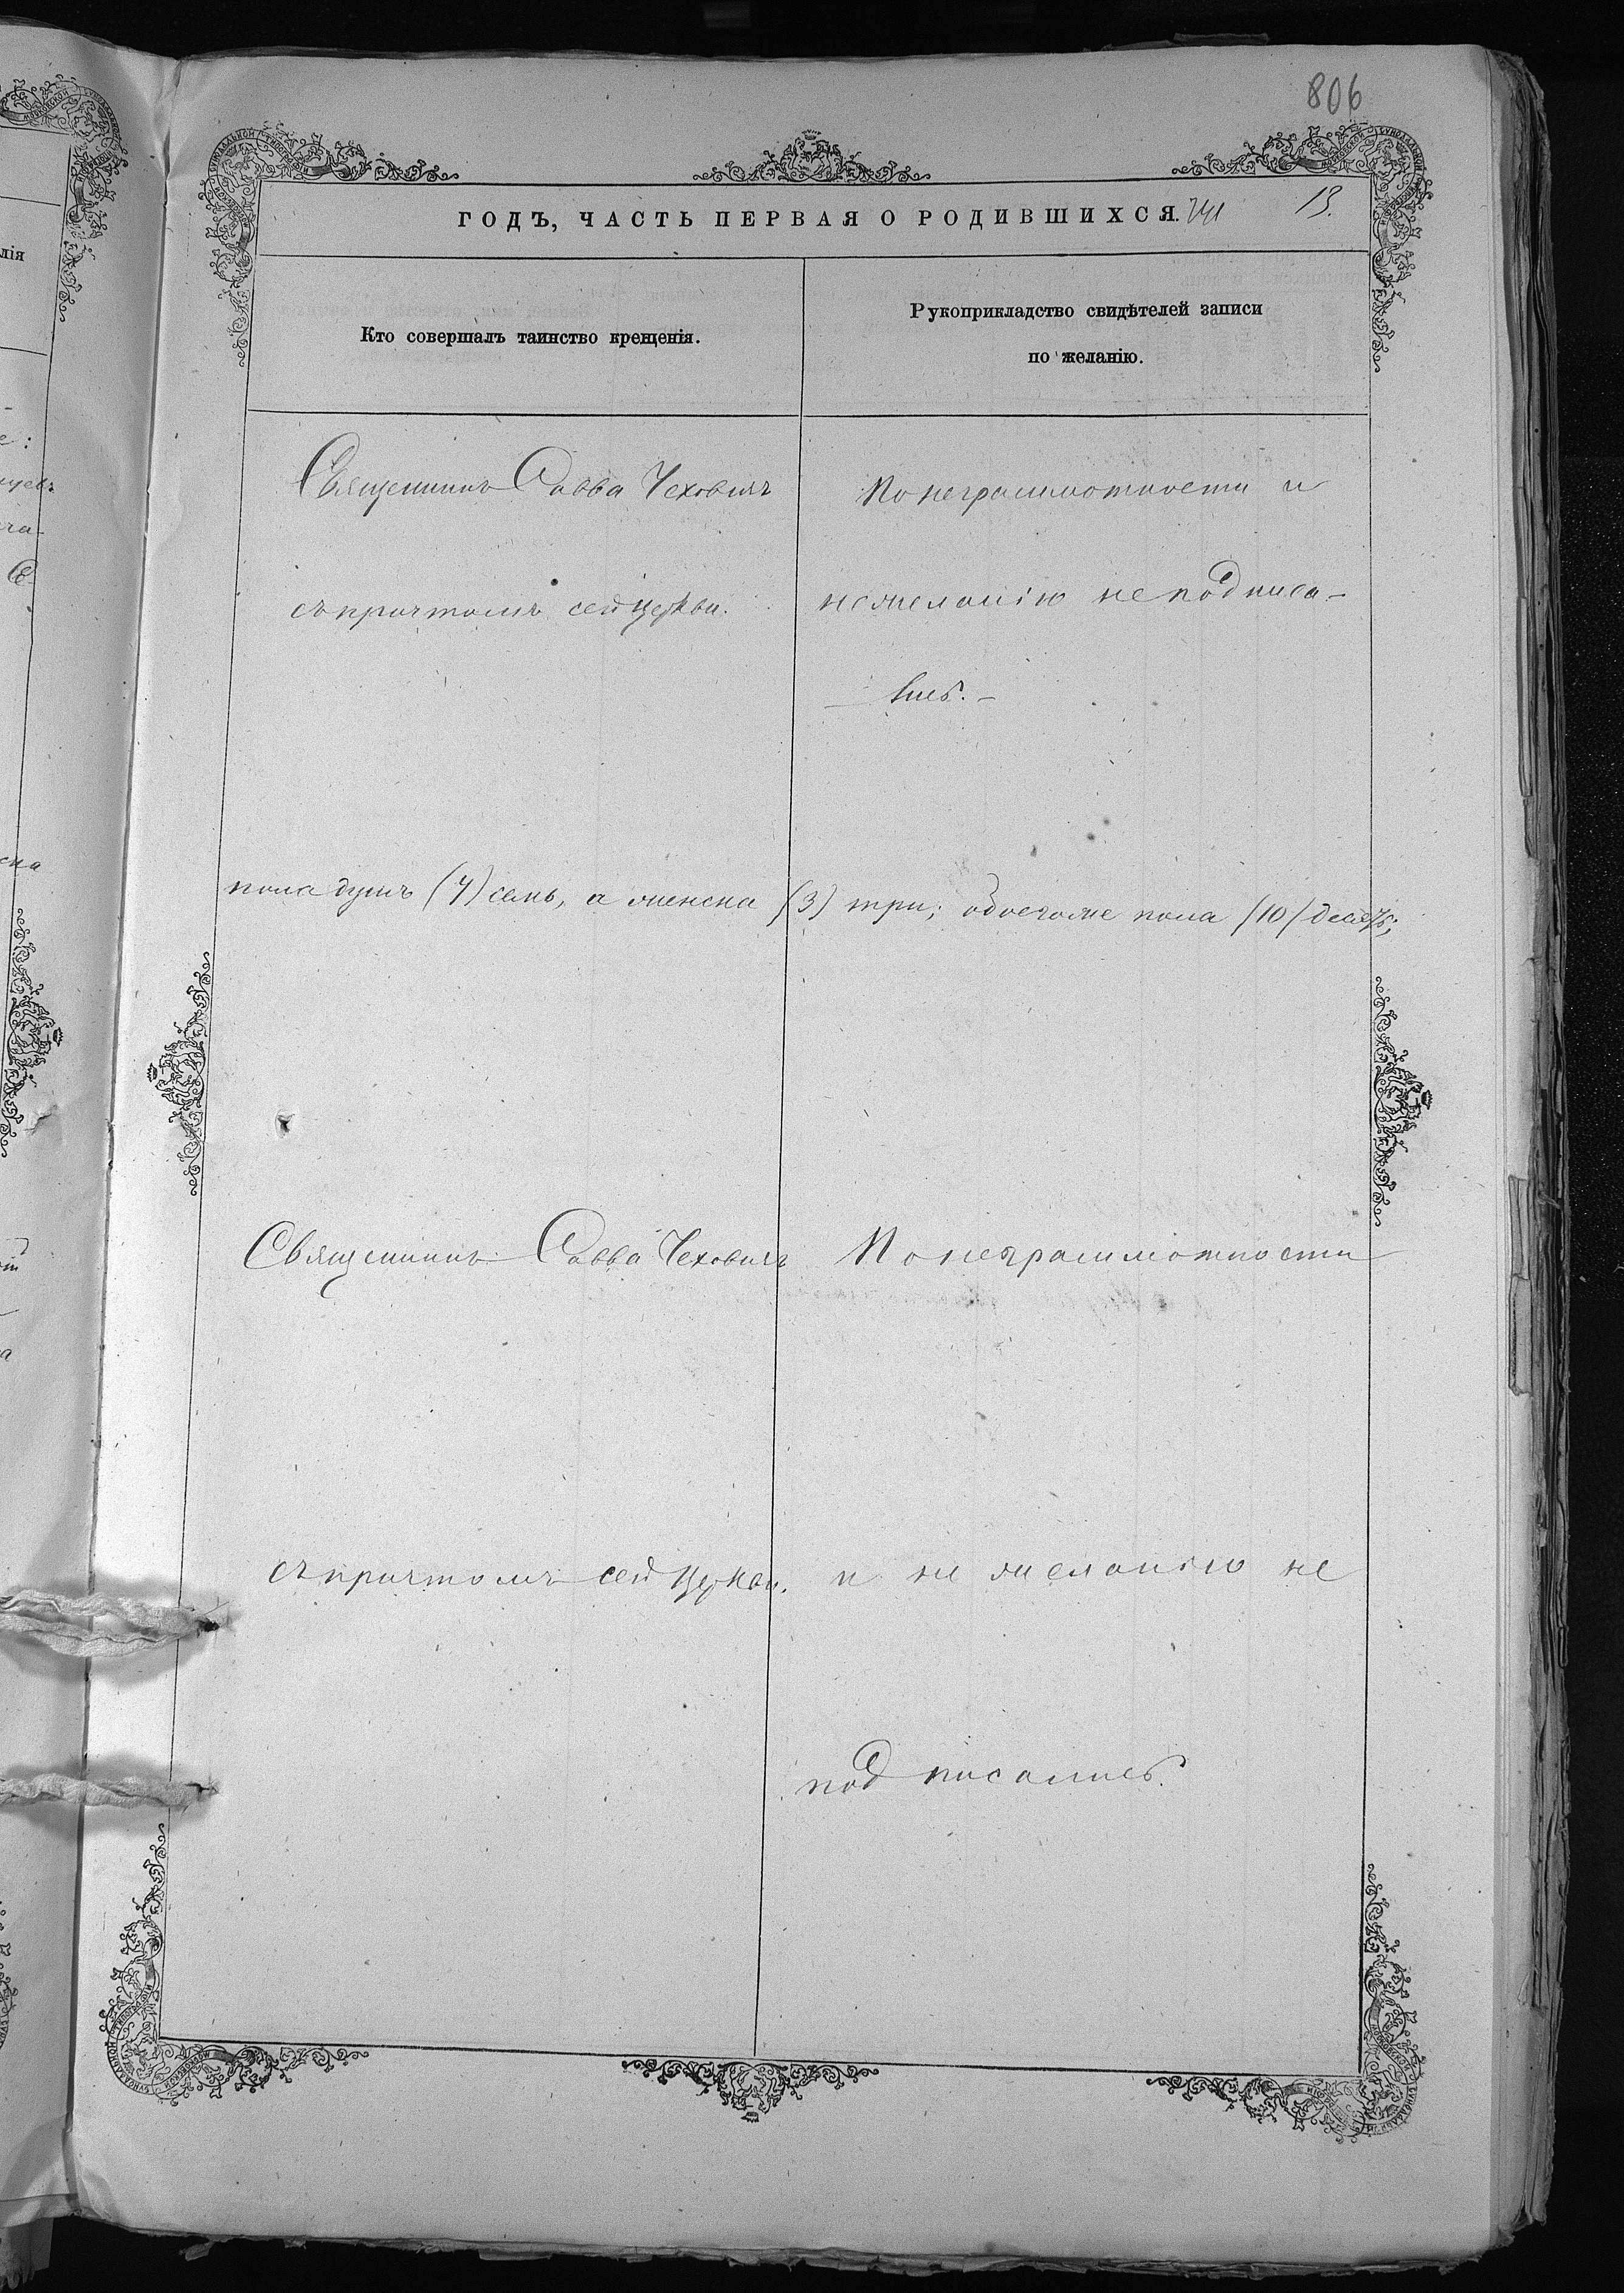 806
ГОДЪ, ЧАСТЬ ПЕРВАЯ О РОДИВШИХСЯ. 741 13.
Кто совершалъ таинство крещенія.
Рукоприкладство свидѣтелей записи
по желанію.
Священникъ Савва Чеховичъ
съ причтомъ сей церкви.
По неграммотности и
нежеланію не подписа-
лись.-
пола душъ (7) семь, а женска (3) три; обоегоже пола (10) десять;
Священникъ Савва Чеховичъ
съ причтомъ сей церкви.
По неграммотности
и не желанію не
подписались.
лія